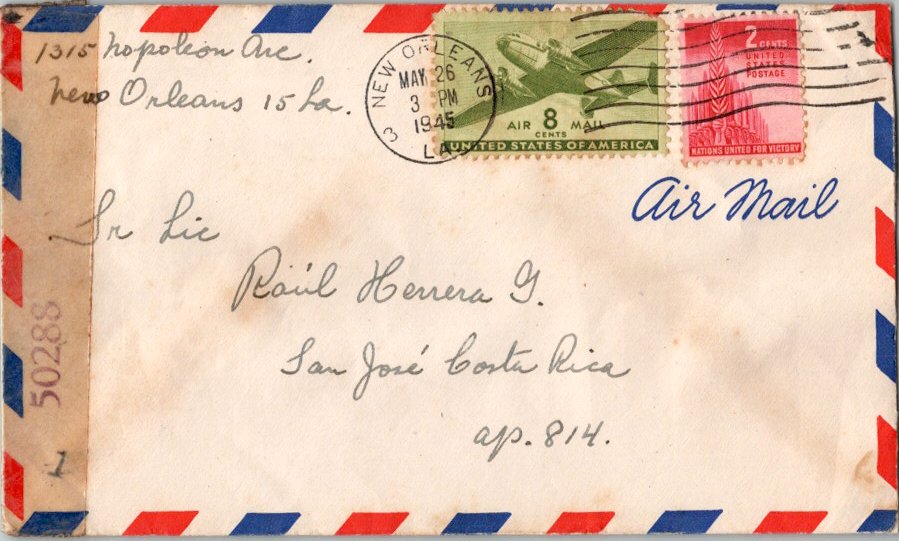 1315 Nopoleon Ave.
New Orleans 15 La.
NEW ORLEANS
MAY 26
3 PM
1945
LA
3
AIR 8 MAIL
CENTS
UNITED STATES OF AMERICA
2 CENTS
UNITED
STATES
POSTAGE
NATIONS UNITED FOR VICTORY
Air Mail
Sr Lic
Raúl Herrera G.
San José Costa Rica
ap. 814.
50288
1